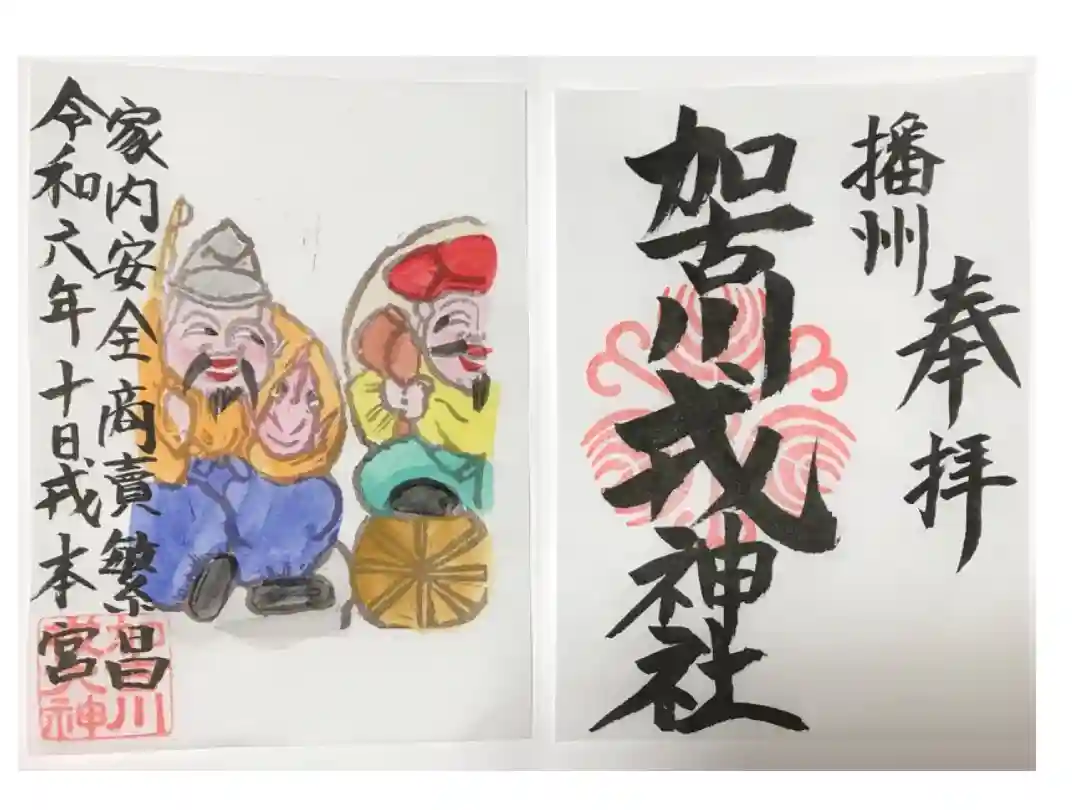 奉拝
播州
加古川戎神社
家内安全商賣繁昌
令和六年十日戎本宮